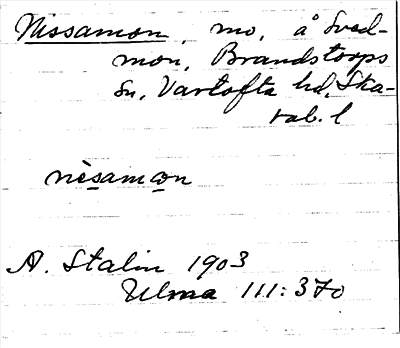 Nissamon, mo, å Sved-
mon, Brandstorps
sn, Vartofta hd, Ska-
rab. l
nèsamon
A. Stalin 1903
Ulma 111:370